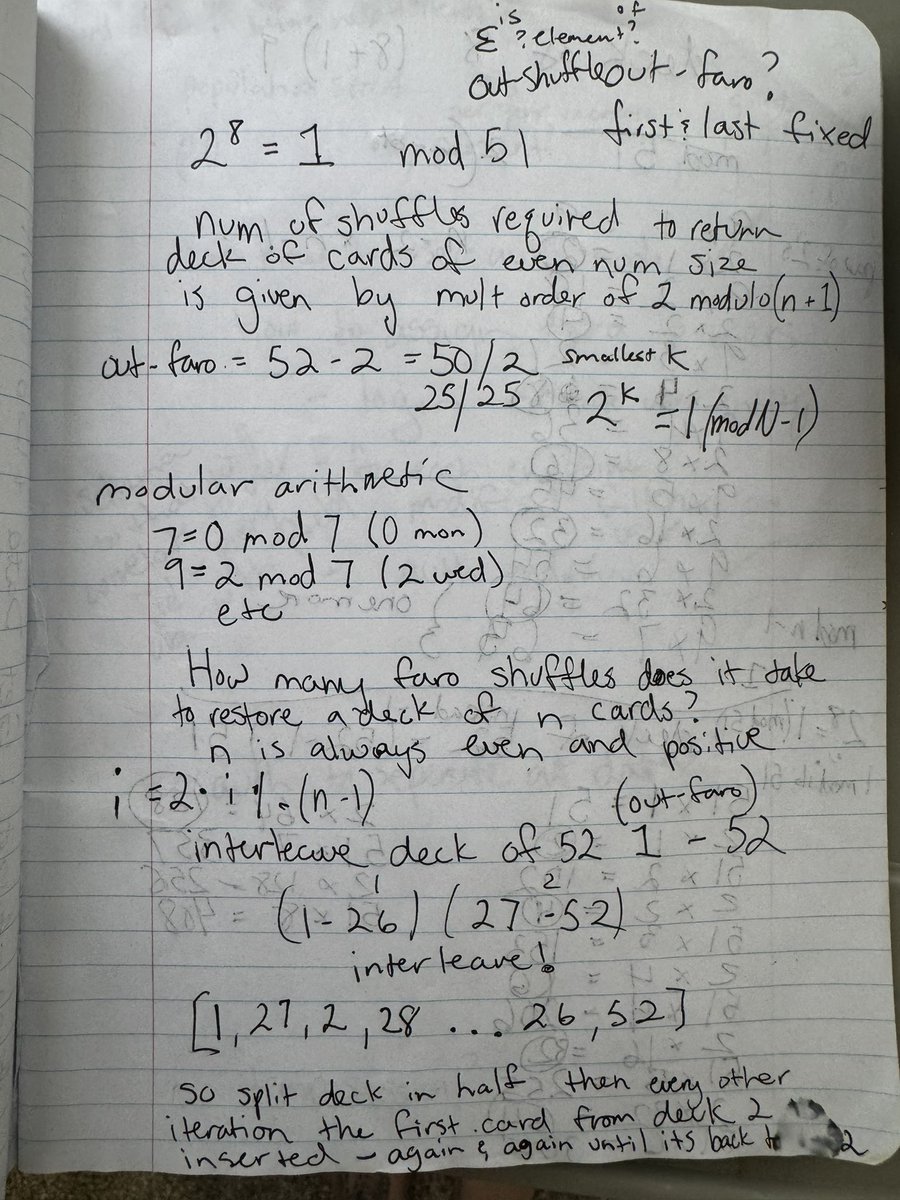 is of
Ɛ ? element?
out-shuffle out-faro?
first & last fixed
2⁸ = 1 mod 51
num of shuffles required to return
deck of cards of even num size
is given by mult order of 2 modulo(n+1)
out-faro = 52 - 2 = 50/2 smallest k
25/25 2ᵏ = 1 (mod N-1)
modular arithmetic
7=0 mod 7 (0 mon)
9=2 mod 7 (2 wed)
etc
How many faro shuffles does it take
to restore a deck of n cards?
n is always even and positive
i = 2 · i % (n-1) (out-faro)
interleave deck of 52 1 - 52
1 2
(1-26) (27-52)
interleave!
[1, 27, 2, 28 ... 26, 52]
so split deck in half then every other
iteration the first card from deck 2
inserted - again & again until its back to